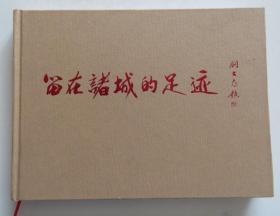 留在諸城的足迹